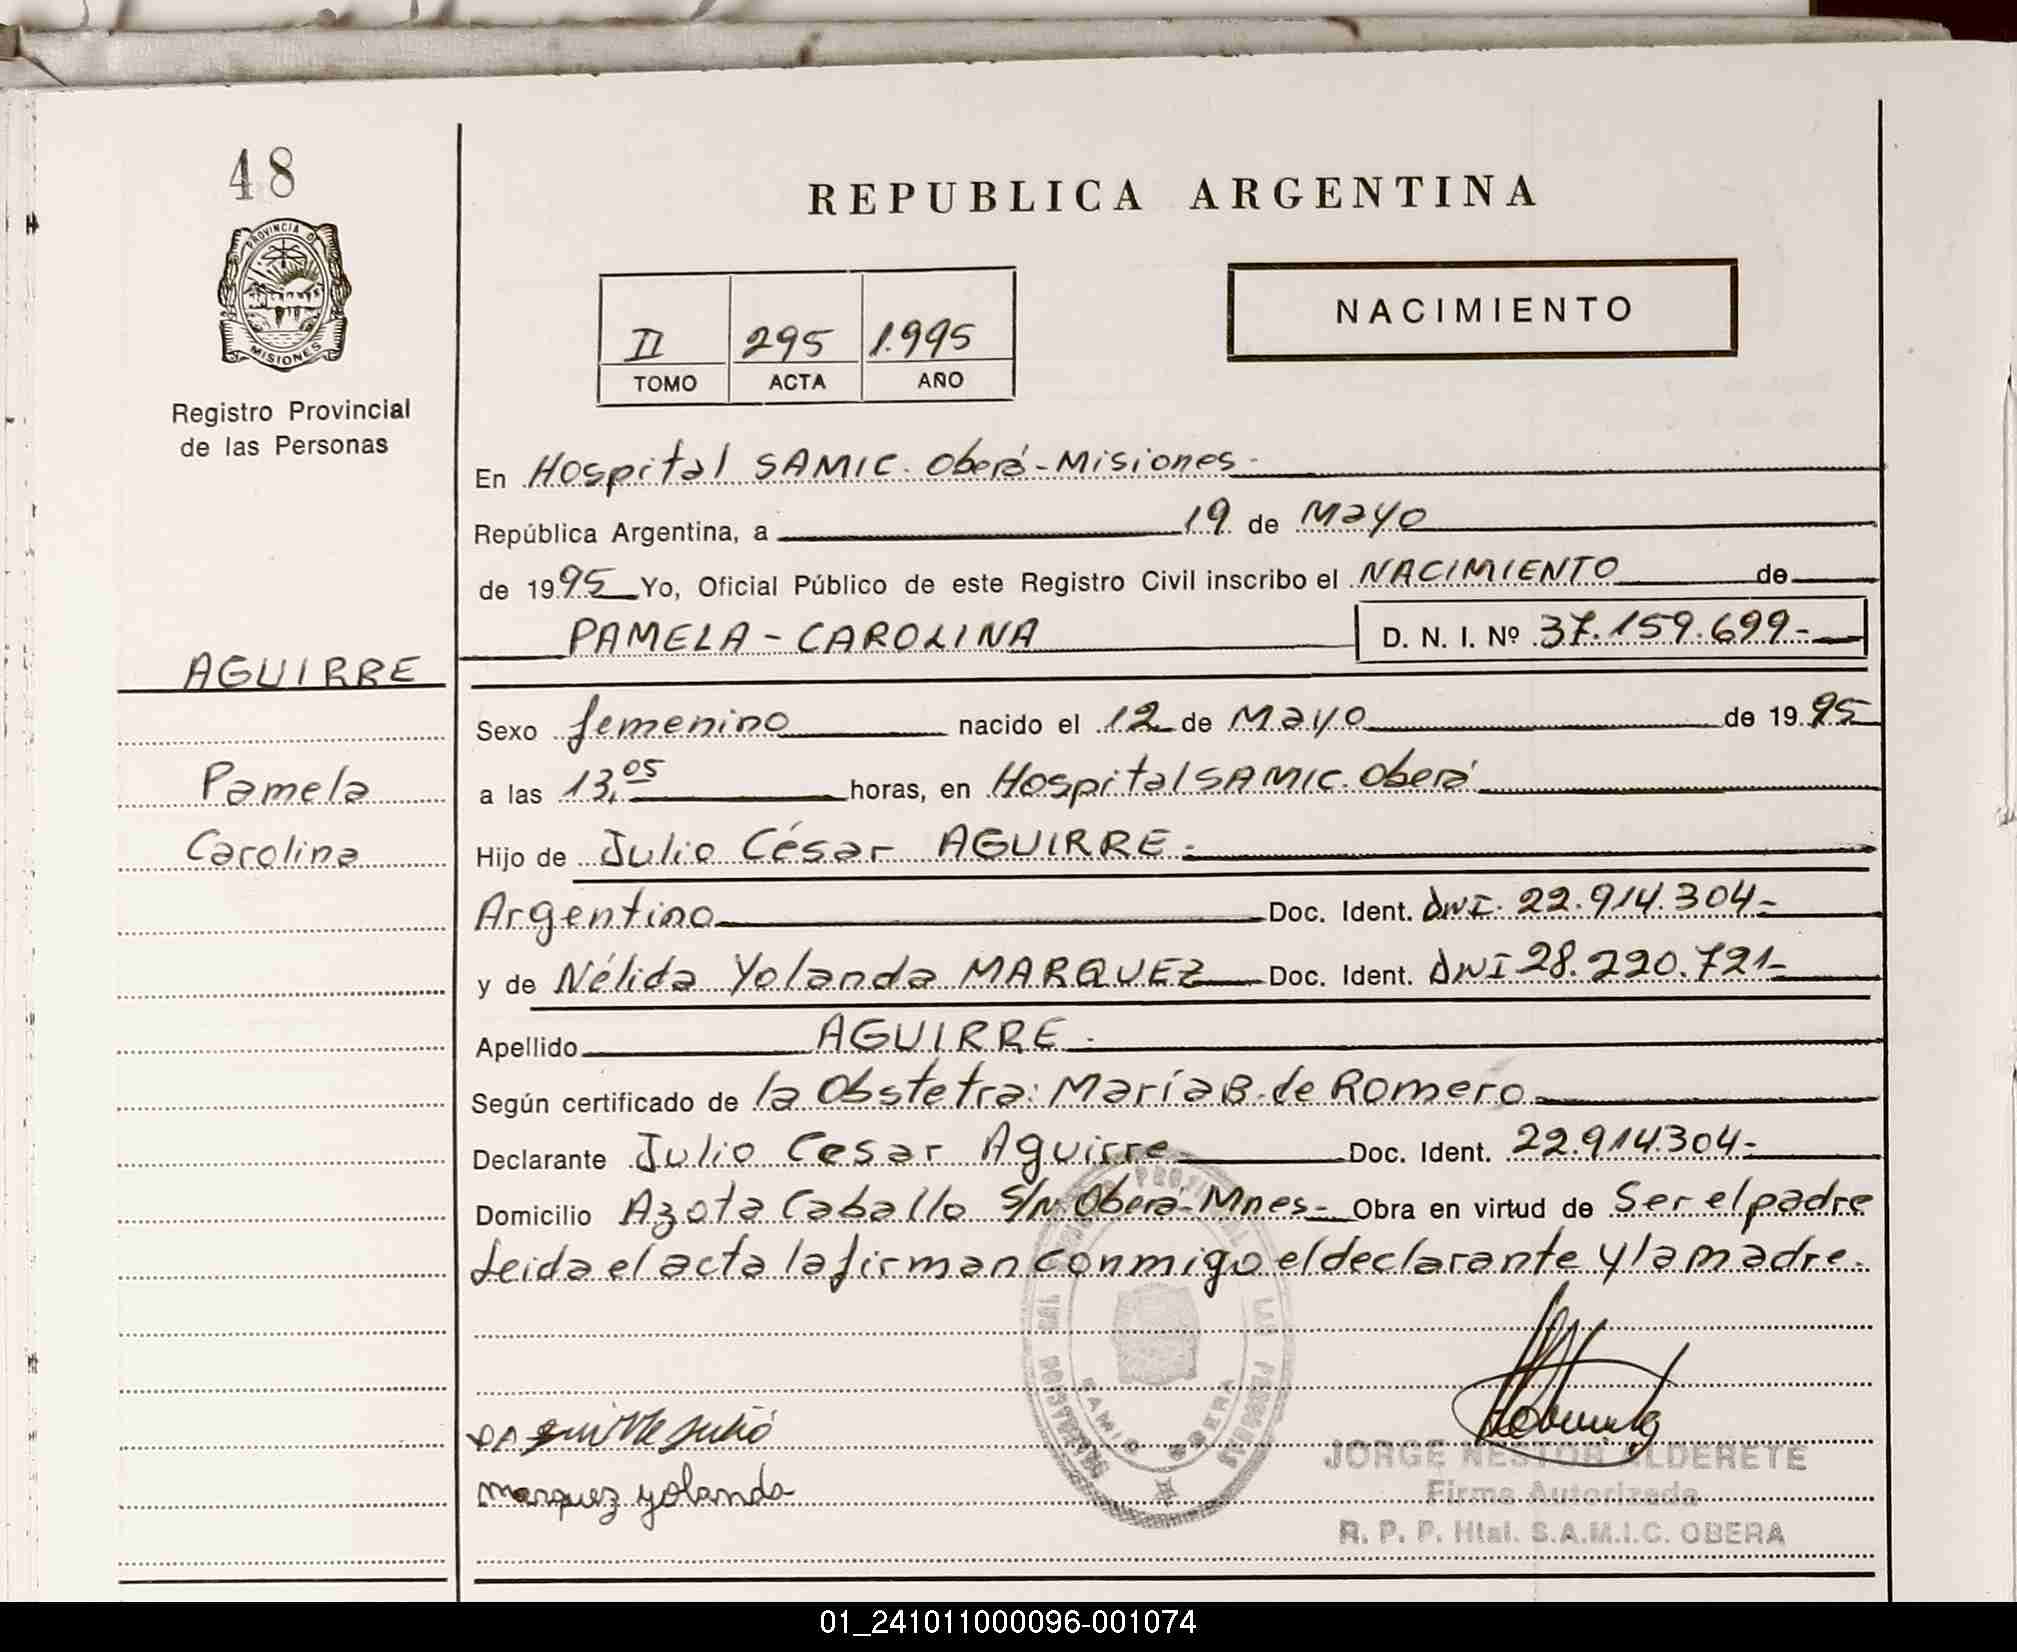 48
PROVINCIA DE
MISIONES
Registro Provincial
de las Personas
AGUIRRE
Pamela
Carolina
REPUBLICA ARGENTINA
II 295 1.995
TOMO ACTA AÑO
NACIMIENTO
En Hospital SAMIC. Oberá - Misiones -
República Argentina, a 19 de Mayo
de 1995 Yo, Oficial Público de este Registro Civil inscribo el NACIMIENTO de
PAMELA - CAROLINA D. N. I. Nº 37.159.699-
Sexo femenino nacido el 12 de Mayo de 1995
a las 13,05 horas, en Hospital SAMIC. Oberá
Hijo de Julio César AGUIRRE.
Argentino Doc. Ident. DNI. 22.914.304-
y de Nélida Yolanda MARQUEZ Doc. Ident. DNI 28.220.721-
Apellido AGUIRRE.
Según certificado de la Obstetra: María B. de Romero
Declarante Julio Cesar Aguirre Doc. Ident. 22.914.304-
Domicilio Azota Caballo S/N Oberá - Mnes - Obra en virtud de Ser el padre
Leida el acta la firman conmigo el declarante y la madre.
marquez yolanda
SAMIC OBERA
JORGE NESTOR ALDERETE
Firma Autorizada
R. P. P. Htal. S.A.M.I.C. OBERA
01_241011000096-001074